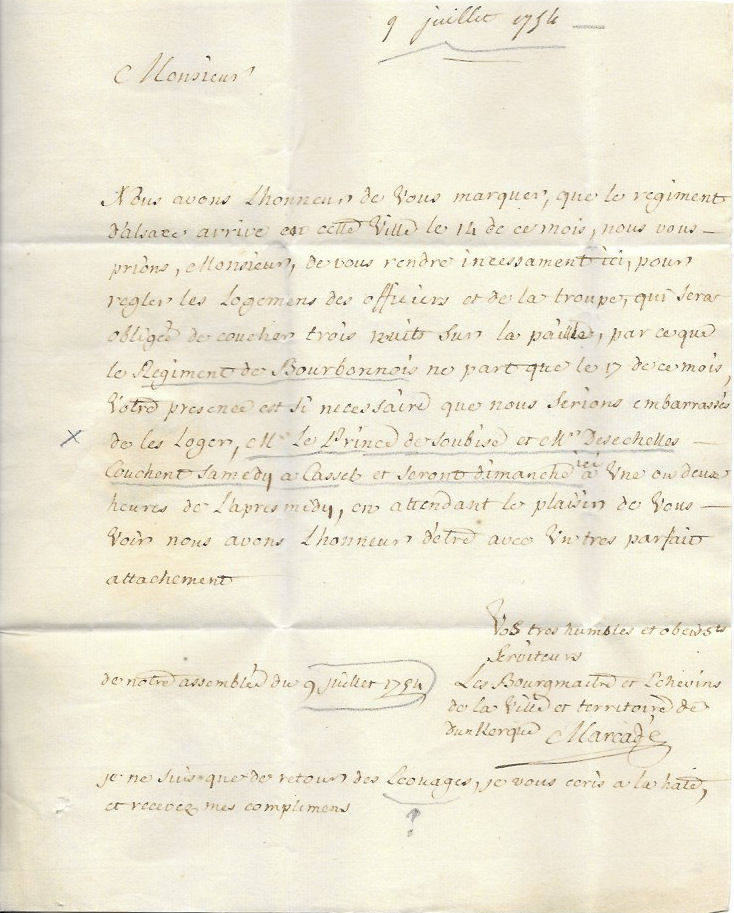 9 juillet 1754
Monsieur
Nous avons Lhonneur de Vous marquer, que le regiment
d'alsace arrive en cette Ville le 14 de ce mois, nous vous
prions, Monsieur, de vous rendre incessament ici, pour
regler les Logemens des officiers et de la troupe, qui sera
obligée de coucher trois nuits sur la paille, par ce que
le Regiment de Bourbonnois ne part que le 17 de ce mois,
Votre presence est si necessaire que nous serions embarrassés
X de les Loger, Mr Le Prince de Soubise et Mr Desechelles
Couchent Samedy a Cassel et seront dimanche ici a Une ou deux
heures de L'apres midy, en attendant le plaisir de Vous
Voir nous avons Lhonneur d'etre avec Un tres parfait
attachement
Vos tres humbles et obeissts
Serviteurs
de notre assemblée du 9 juillet 1754
Les Bourgmaitre et Echevins
de la Ville et territoire de
dunkerque Marcadé
je ne suis que de retour des Ecouages, je vous ecris a la hate,
et recevez mes complimens
?